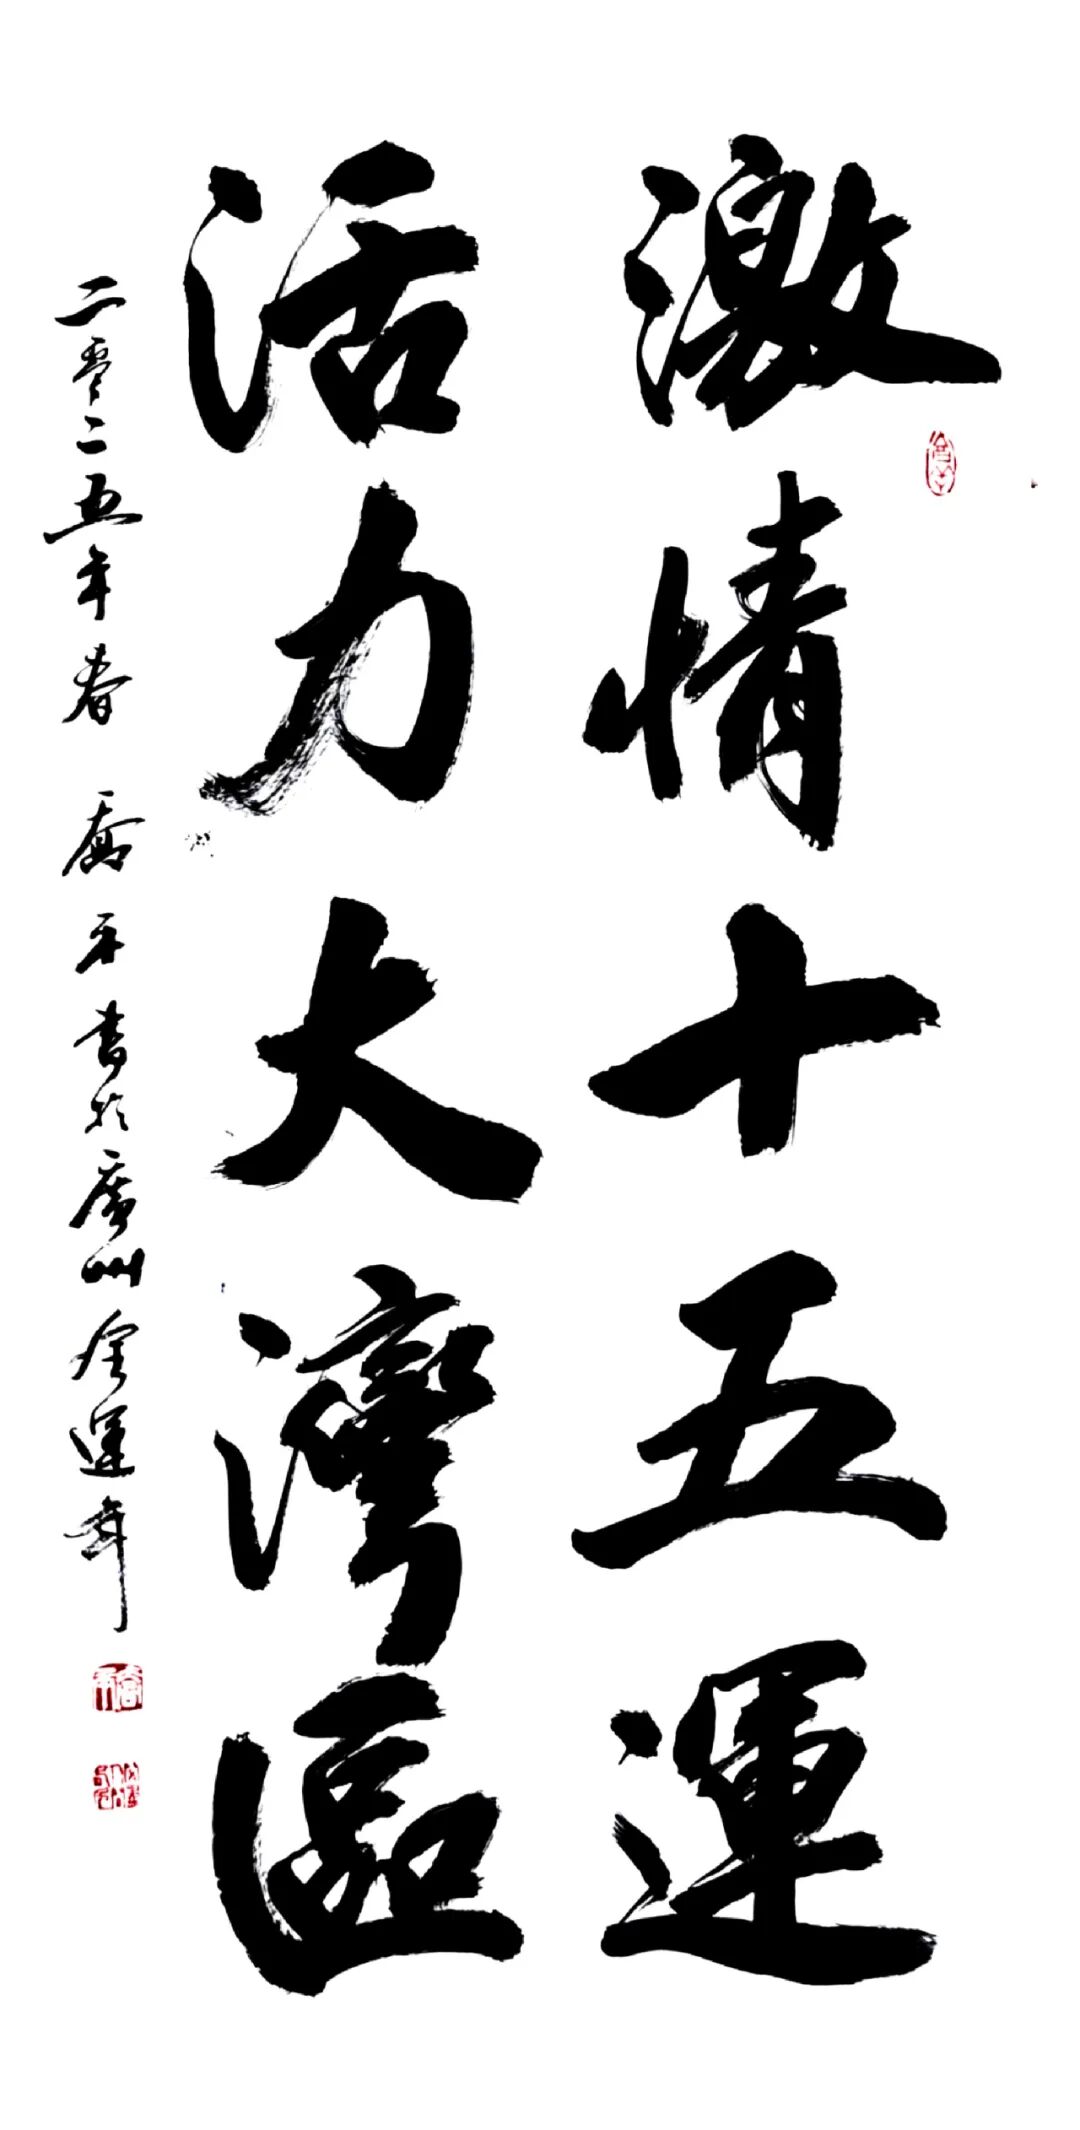 激情十五運
活力大灣區
二零二五年春 喬平書於廣州全運年